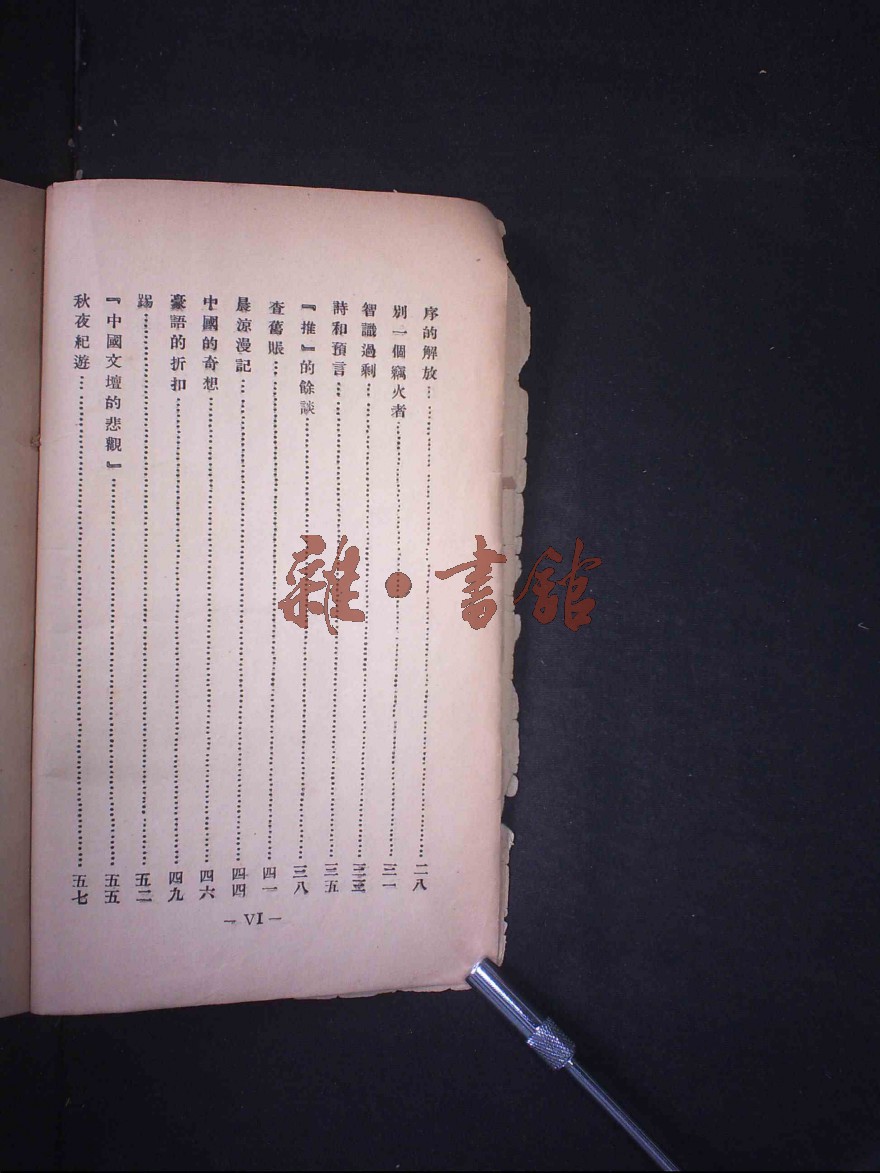 序的解放……二八
別一個竊火者……三一
智識過剩……三三
詩和預言……三五
『推』的餘談……三八
查舊賬……四一
晨涼漫記……四四
中國的奇想……四六
豪語的折扣……四九
踢……五二
『中國文壇的悲觀』……五五
秋夜紀遊……五七
— VI —
雜·書館